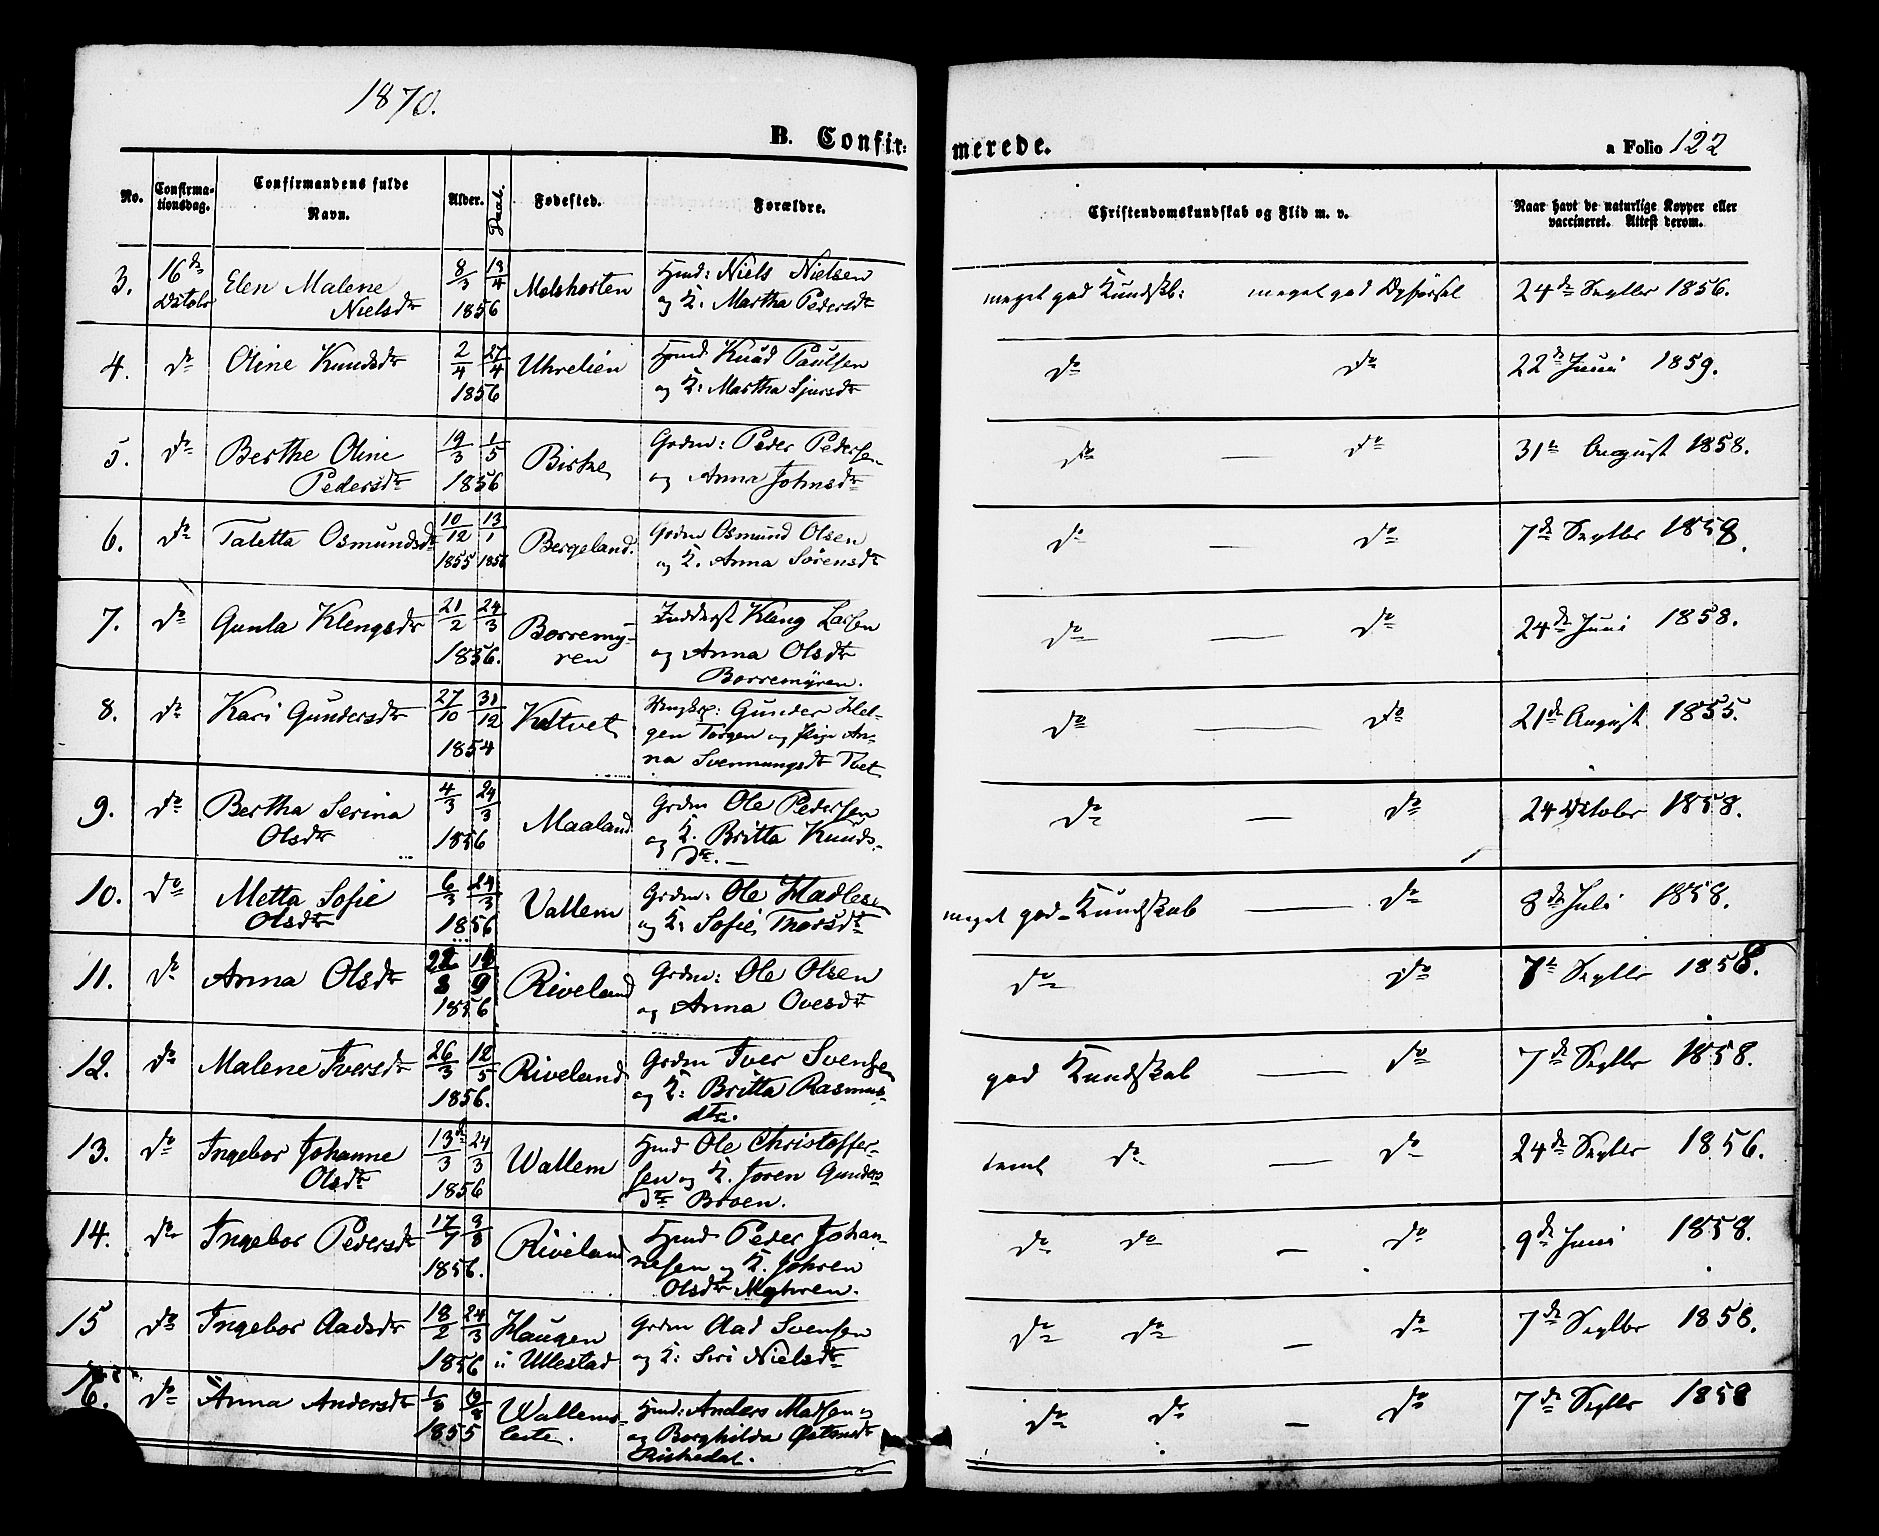 1870.
B. Confirmerede.
a Folio 122
No. Confirmationsdag. Confirmandens fulde Navn. Alder. Daab. Fødested. Forældre. Christendomskundskab og Flid m. v. Naar havt de naturlige Kopper eller vaccineret. Attest derom.
3. 16de Octobr Elen Malene Nielsdr 8/3 13/4 1856 Melshorten Hmd: Niels Nielsen og K. Martha Pedersdr meget god Kundskb: meget god Opførsel 24de Septbr 1856.
4. do Oline Knudsdr 2/4 27/4 1856 Uhrelien Hmd Knud Paulsen og K. Martha Sjursdr do do 22de Juni 1859.
5. do Berthe Oline Pedersdr 19/3 1/5 1856 Birke Grdm: Peder Pedersen og Anna Johnsdr do — do 31te August 1858.
6. do Taletta Osmundsdr 10/12 1855 13/1 1856 Bergeland. Grdm Osmund Olsen og K. Anna Sørensdr do — do 7de Septbr 1858.
7. do Gunla Klengsdr 21/2 24/3 1856. Borremyren Inderst Kleng Larsen og Anna Olsdr Borremyren. do — do 24de Juni 1858.
8. do Kari Gundersdr 27/10 31/12 1854 Gunder Helgen Torgen og Pige Anna Svennungsdr Tvet do — do 21de August 1855.
9. do Bertha Serina Olsdr 4/3 24/3 1856 Maaland Grdm Ole Pedersen og K. Britta Knudsdr. — do — do 24 Octobr 1858.
10. do Metta Sofie Olsdr 6/3 24/3 1856 Vallem Grdm: Ole Hadlesen og K: Sofie Thorsdr meget god Kundskab — do 8de Juli 1858.
11. do Anna Olsdr 1856 Riveland Grdm: Ole Olsen og Anna Ovesdr do do 7de Septbr 1858.
12. do Malene Iversdr 26/3 12/5 1856. Riveland Grdm Iver Svensen og K: Britta Rasmusdtr. god Kundskab — do 7de Septbr 1858.
13. do Ingebor Johanne Olsdr 13de/3 24/3 1856 Wallem Hmd Ole Christoffersen og K. Joren Gundersdtr Broen. temt do — do 24de Septbr 1856.
14. do Ingebor Pedersdr 1856. Riveland Hmd Peder Johannesen og K. Johren Olsdr Myhren. do do — do 9de Juni 1858.
15 do Ingebor Aadsdr 18/2 24/3 1856 Haugen i Ullestad Grdm Aad Svensen og K: Siri Nielsdr do do — do 7de Septbr 1858.
16. do Anna Andersdr 1855 Wallemsleite. Hmd: Anders Madsen og og Borghilda Østensdr Riskedal. do do — do 7de Septbr 1858